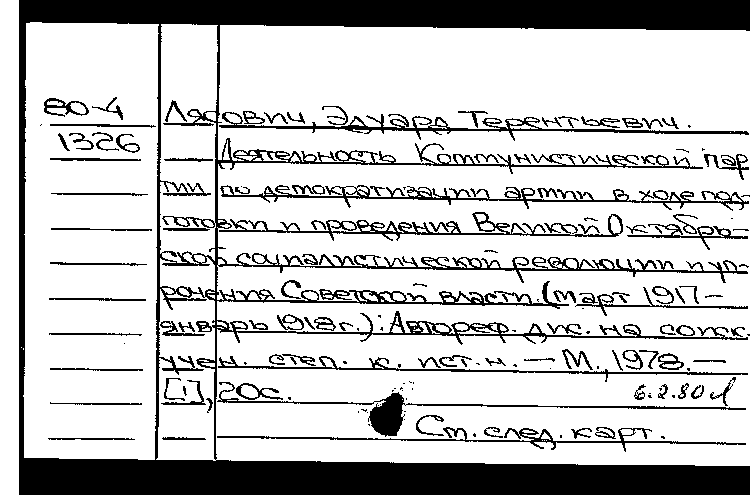 80-4 Лясович, Эдуард Терентьевич.
1326 Деятельность Коммунистической пар-
тии по демократизации армии в ходе под-
готовки и проведения Великой Октябрь-
ской социалистической революции и уп-
рочения Советской власти. (март 1917-
январь 1918г.): Автореф. дис. на соиск.
учен. степ. к. ист. н. — М., 1978. —
[1], 20с. 6.2.80
Ст. след. карт.